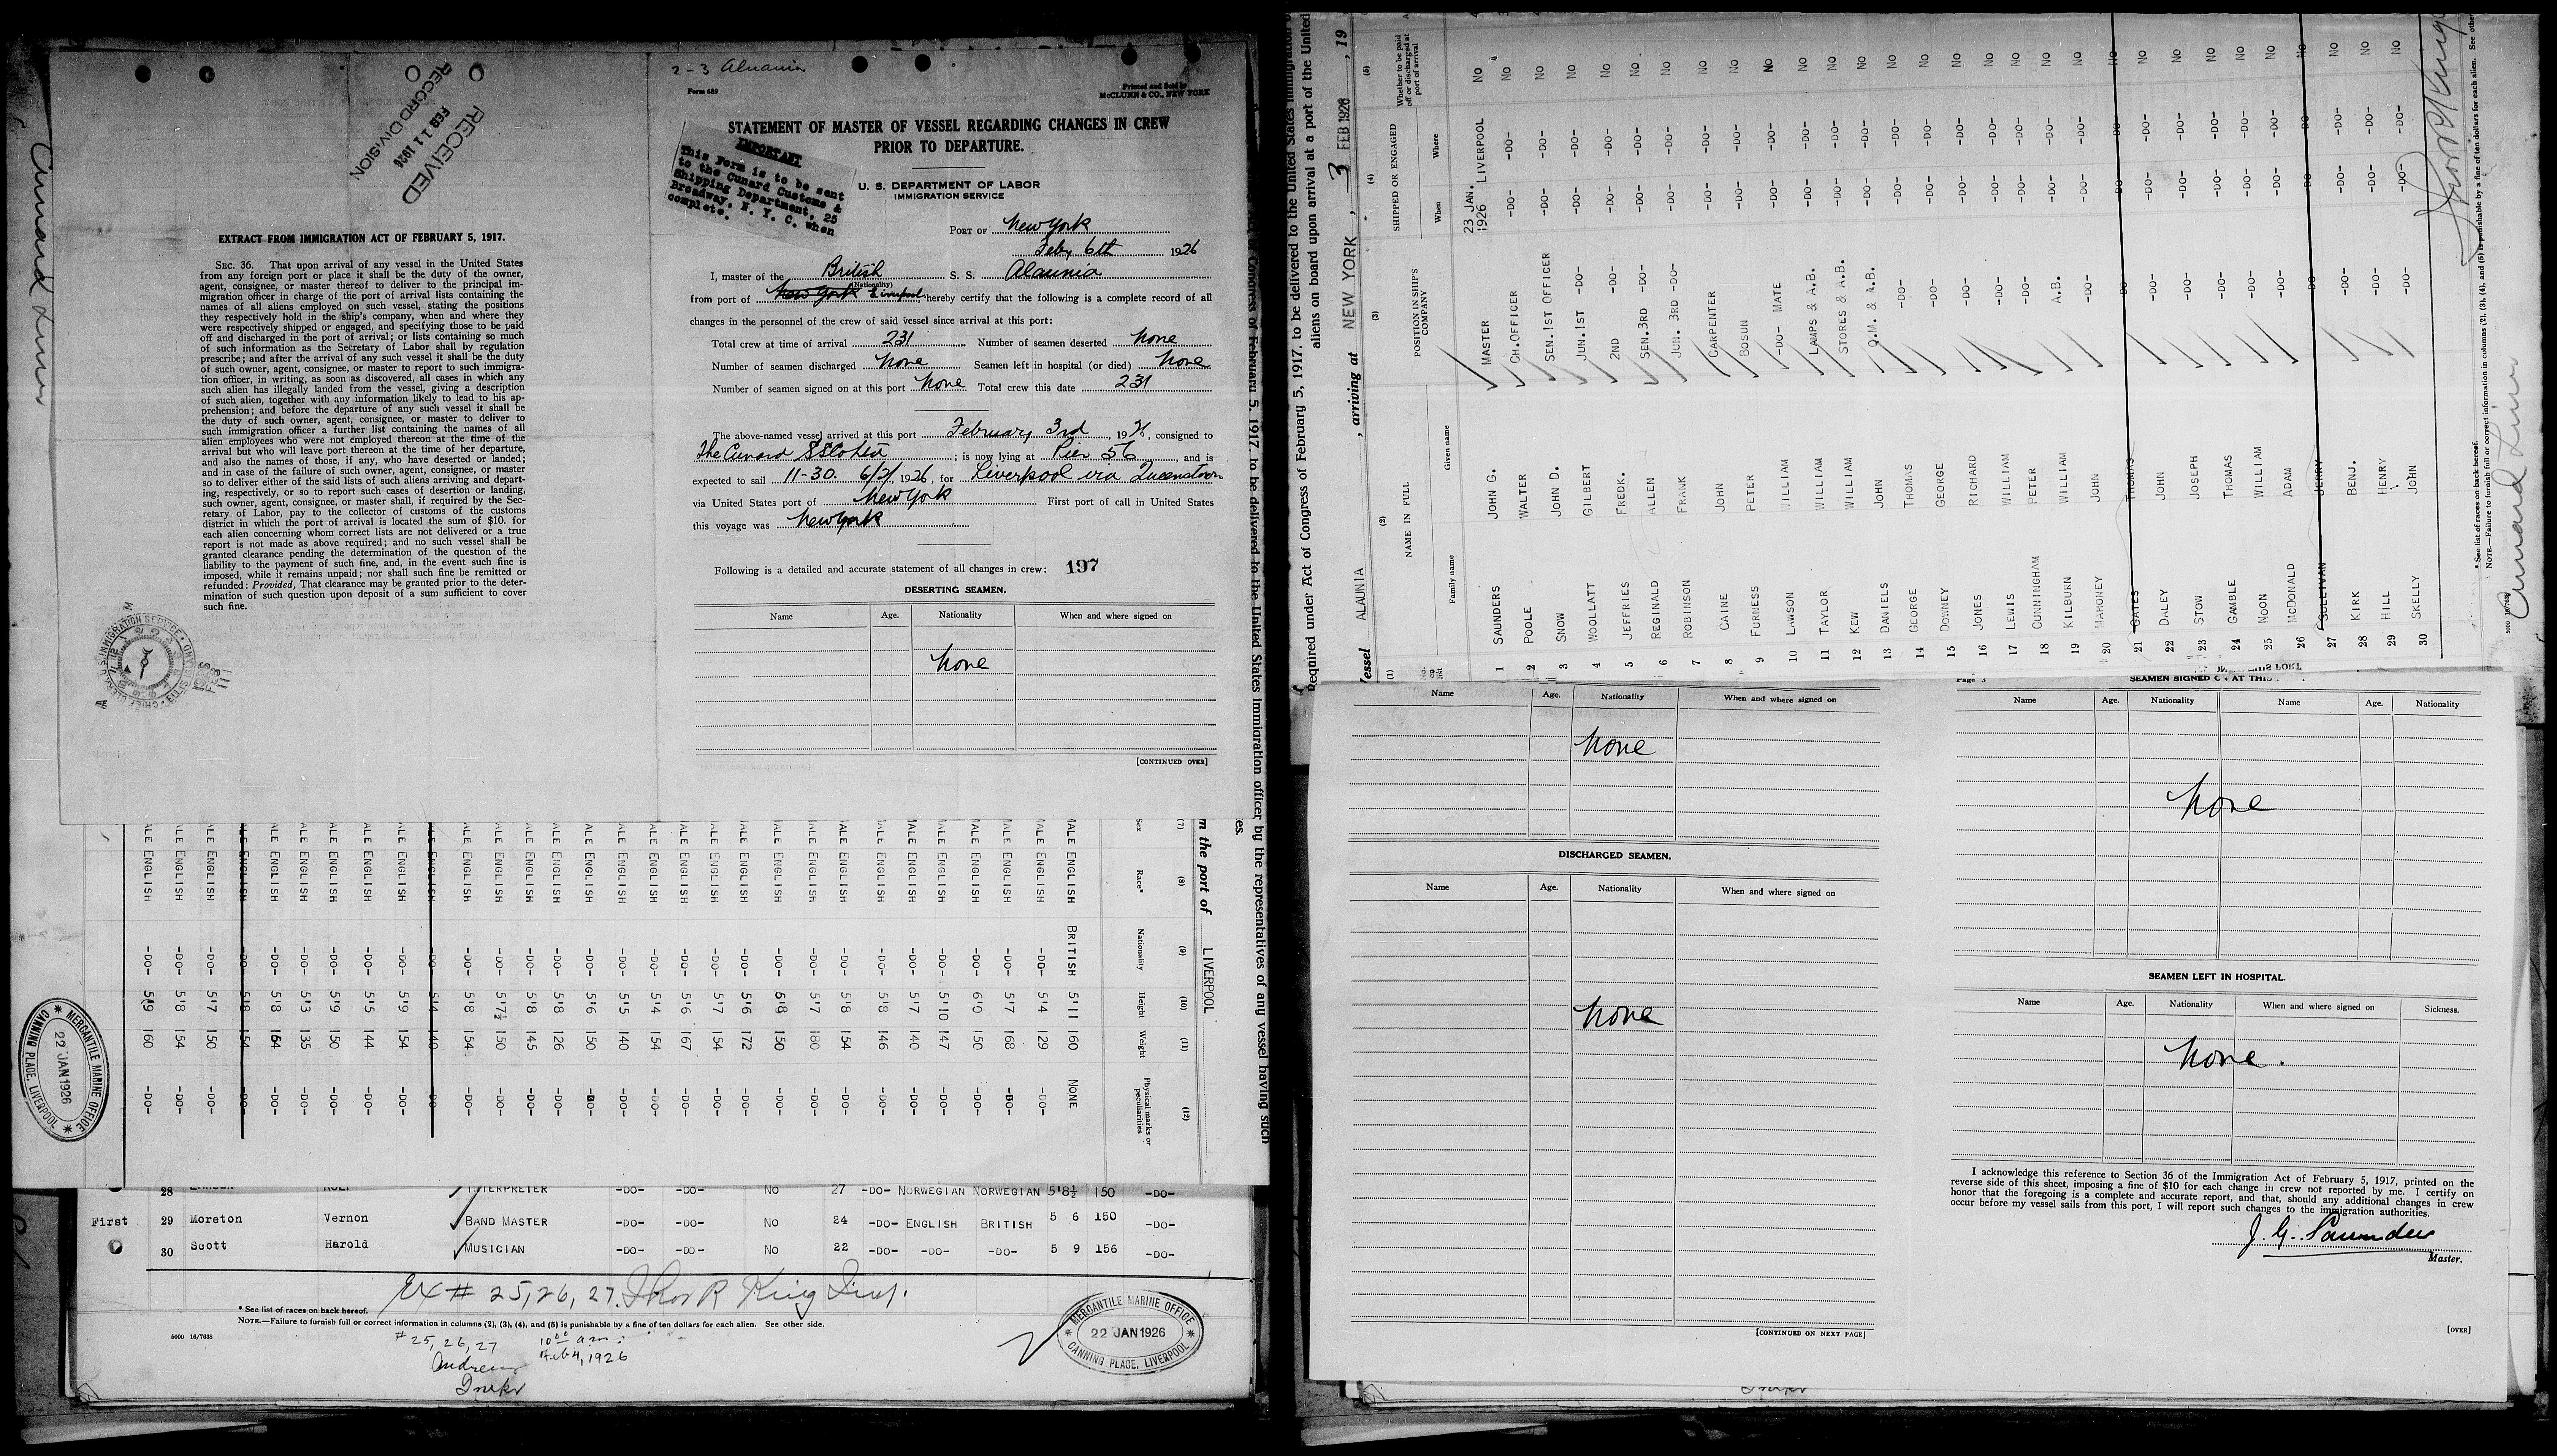 Cunard Liner
RECEIVED
FEB 11 1926
RECORD DIVISION
EXTRACT FROM IMMIGRATION ACT OF FEBRUARY 5, 1917.
SEC. 36. That upon arrival of any vessel in the United States
from any foreign port or place it shall be the duty of the owner,
agent, consignee, or master thereof to deliver to the principal im-
migration officer in charge of the port of arrival lists containing the
names of all aliens employed on such vessel, stating the positions
they respectively hold in the ship's company, when and where they
were respectively shipped or engaged, and specifying those to be paid
off and discharged in the port of arrival; or lists containing so much
of such information as the Secretary of Labor shall by regulation
prescribe; and after the arrival of any such vessel it shall be the duty
of such owner, agent, consignee, or master to report to such immigra-
tion officer, in writing, as soon as discovered, all cases in which any
such alien has illegally landed from the vessel, giving a description
of such alien, together with any information likely to lead to his ap-
prehension; and before the departure of any such vessel it shall be
the duty of such owner, agent, consignee, or master to deliver to
such immigration officer a further list containing the names of all
alien employees who were not employed thereon at the time of the
arrival but who will leave port thereon at the time of her departure,
and also the names of those, if any, who have deserted or landed;
and in case of the failure of such owner, agent, consignee, or master
so to deliver either of the said lists of such aliens arriving and depart-
ing, respectively, or so to report such cases of desertion or landing,
such owner, agent, consignee, or master shall, if required by the Sec-
retary of Labor, pay to the collector of customs of the customs
district in which the port of arrival is located the sum of $10. for
each alien concerning whom correct lists are not delivered or a true
report is not made as above required; and no such vessel shall be
granted clearance pending the determination of the question of the
liability to the payment of such fine, and, in the event such fine is
imposed, while it remains unpaid; nor shall such fine be remitted or
refunded: Provided, That clearance may be granted prior to the deter-
mination of such question upon deposit of a sum sufficient to cover
such fine.
2-3 Alaunia
Form 689
Printed and Sold by
McCLUNN & CO., NEW YORK
STATEMENT OF MASTER OF VESSEL REGARDING CHANGES IN CREW
PRIOR TO DEPARTURE.
IMPORTANT
This Form is to be sent
to the Cunard Customs &
Shipping Department, 25
Broadway, N. Y. C. when
complete.
U. S. DEPARTMENT OF LABOR
IMMIGRATION SERVICE
PORT OF New York
Feby 6th 1926
I, master of the British S. S. Alaunia
(Nationality)
from port of New York Liverpool hereby certify that the following is a complete record of all
changes in the personnel of the crew of said vessel since arrival at this port:
Total crew at time of arrival 231 Number of seamen deserted None
Number of seamen discharged None Seamen left in hospital (or died) None
Number of seamen signed on at this port None Total crew this date 231
The above-named vessel arrived at this port February 3rd, 1926, consigned to
The Cunard SS Co Ltd; is now lying at Pier 56, and is
expected to sail 11-30. 6/2/1926, for Liverpool via Queenstown
via United States port of New York First port of call in United States
this voyage was New York
Following is a detailed and accurate statement of all changes in crew: 197
DESERTING SEAMEN.
Name Age. Nationality When and where signed on
None
[CONTINUED OVER]
m the port of LIVERPOOL
(7) (8) (9) (10) (11) (12)
Sex Race* Nationality Height Weight Physical marks or peculiarities
ALE ENGLISH BRITISH 5'11 160 NONE
ALE ENGLISH -DO- 5'4 129 -DO-
ALE ENGLISH -DO- 5'7 168 -DO-
ALE ENGLISH -DO- 6'0 150 -DO-
ALE ENGLISH -DO- 5'10 147 -DO-
ALE ENGLISH -DO- 5'7 140 -DO-
ALE ENGLISH -DO- 5'8 146 -DO-
ALE ENGLISH -DO- 5'8 154 -DO-
ALE ENGLISH -DO- 5'7 180 -DO-
ALE ENGLISH -DO- 5'8 150 -DO-
ALE ENGLISH -DO- 5'6 172 -DO-
ALE ENGLISH -DO- 5'7 154 -DO-
ALE ENGLISH -DO- 5'6 167 -DO-
ALE ENGLISH -DO- 5'4 154 -DO-
ALE ENGLISH -DO- 5'5 140 -DO-
ALE ENGLISH -DO- 5'6 150 -DO-
ALE ENGLISH -DO- 5'8 126 -DO-
ALE ENGLISH -DO- 5'8 145 -DO-
ALE ENGLISH -DO- 5'7½ 150 -DO-
ALE ENGLISH -DO- 5'8 154 -DO-
ALE ENGLISH -DO- 5'4 140 -DO-
ALE ENGLISH -DO- 5'9 154 -DO-
ALE ENGLISH -DO- 5'5 144 -DO-
ALE ENGLISH -DO- 5'9 150 -DO-
ALE ENGLISH -DO- 5'3 135 -DO-
ALE ENGLISH -DO- 5'8 154 -DO-
ALE ENGLISH -DO- 5'8 154 -DO-
ALE ENGLISH -DO- 5'7 150 -DO-
ALE ENGLISH -DO- 5'8 154 -DO-
ALE ENGLISH -DO- 5'9 160 -DO-
MERCANTILE MARINE OFFICE
22 JAN 1926
CANNING PLACE, LIVERPOOL
28 INTERPRETER -DO- -DO- No 27 -DO- NORWEGIAN NORWEGIAN 5'8½ 150 -DO-
First 29 Moreton Vernon BAND MASTER -DO- -DO- No 24 -DO- ENGLISH BRITISH 5 6 150 -DO-
30 Scott Harold MUSICIAN -DO- -DO- No 22 -DO- -DO- -DO- 5 9 156 -DO-
Ex # 25, 26, 27. Thos R King Insp.
* See list of races on back hereof.
NOTE.—Failure to furnish full or correct information in columns (2), (3), (4), and (5) is punishable by a fine of ten dollars for each alien. See other side.
5000 16/7638
# 25, 26, 27
10 00 am
Feb 4, 1926
MERCANTILE MARINE OFFICE
22 JAN 1926
CANNING PLACE, LIVERPOOL
Required under Act of Congress of February 5, 1917, to be delivered to the United States immigration
aliens on board upon arrival at a port of the United
essel ALAUNIA, arriving at NEW YORK, 3 FEB 1926, 19
(1) (2) (3) (4) (5)
NAME IN FULL POSITION IN SHIP'S COMPANY SHIPPED OR ENGAGED Whether to be paid off or discharged at port of arrival
Family name Given name When Where
1 SAUNDERS JOHN G. MASTER 23 JAN. 1926 LIVERPOOL No
2 POOLE WALTER CH.OFFICER -DO- -DO- No
3 SNOW JOHN D. SEN.1ST OFFICER -DO- -DO- No
4 WOOLLATT GILBERT JUN.1ST -DO- -DO- -DO- No
5 JEFFRIES FREDK. 2ND -DO- -DO- -DO- No
6 REGINALD ALLEN SEN.3RD -DO- -DO- -DO- No
7 ROBINSON FRANK JUN. 3RD -DO- -DO- -DO- No
8 CAINE JOHN CARPENTER -DO- -DO- No
9 FURNESS PETER BOSUN -DO- -DO- No
10 LAWSON WILLIAM -DO- MATE -DO- -DO- No
11 TAYLOR WILLIAM LAMPS & A.B. -DO- -DO- No
12 KEW WILLIAM STORES & A.B. -DO- -DO- No
13 DANIELS JOHN Q.M. & A.B. -DO- -DO- No
14 GEORGE THOMAS -DO- -DO- -DO- No
15 DOWNEY GEORGE -DO- -DO- -DO- No
16 JONES RICHARD -DO- -DO- -DO- No
17 LEWIS WILLIAM -DO- -DO- -DO- No
18 CUNNINGHAM PETER -DO- -DO- -DO- No
19 KILBURN WILLIAM A.B. -DO- -DO- No
20 MAHONEY JOHN -DO- -DO- -DO- No
21 GATES THOMAS -DO- -DO- -DO- No
22 DALEY JOHN -DO- -DO- -DO- No
23 STOW JOSEPH -DO- -DO- -DO- No
24 GAMBLE THOMAS -DO- -DO- -DO- No
25 NOON WILLIAM -DO- -DO- -DO- No
26 McDONALD ADAM -DO- -DO- -DO- No
27 SULLIVAN JERRY -DO- -DO- -DO- No
28 KIRK BENJ. -DO- -DO- -DO- No
29 HILL HENRY -DO- -DO- -DO- No
30 SKELLY JOHN -DO- -DO- -DO- No
Thos R King
* See list of races on back hereof.
NOTE.—Failure to furnish full or correct information in columns (2), (3), (4), and (5) is punishable by a fine of ten dollars for each alien. See other
Cunard Liner
Name Age. Nationality When and where signed on
None
DISCHARGED SEAMEN.
Name Age. Nationality When and where signed on
None
[CONTINUED ON NEXT PAGE]
Page 3
SEAMEN SIGNED ON AT THIS
Name Age. Nationality Name Age. Nationality
None
SEAMEN LEFT IN HOSPITAL.
Name Age. Nationality When and where signed on Sickness.
None.
I acknowledge this reference to Section 36 of the Immigration Act of February 5, 1917, printed on the
reverse side of this sheet, imposing a fine of $10 for each change in crew not reported by me. I certify on
honor that the foregoing is a complete and accurate report, and that, should any additional changes in crew
occur before my vessel sails from this port, I will report such changes to the immigration authorities.
J. G. Saunders
Master.
[OVER]